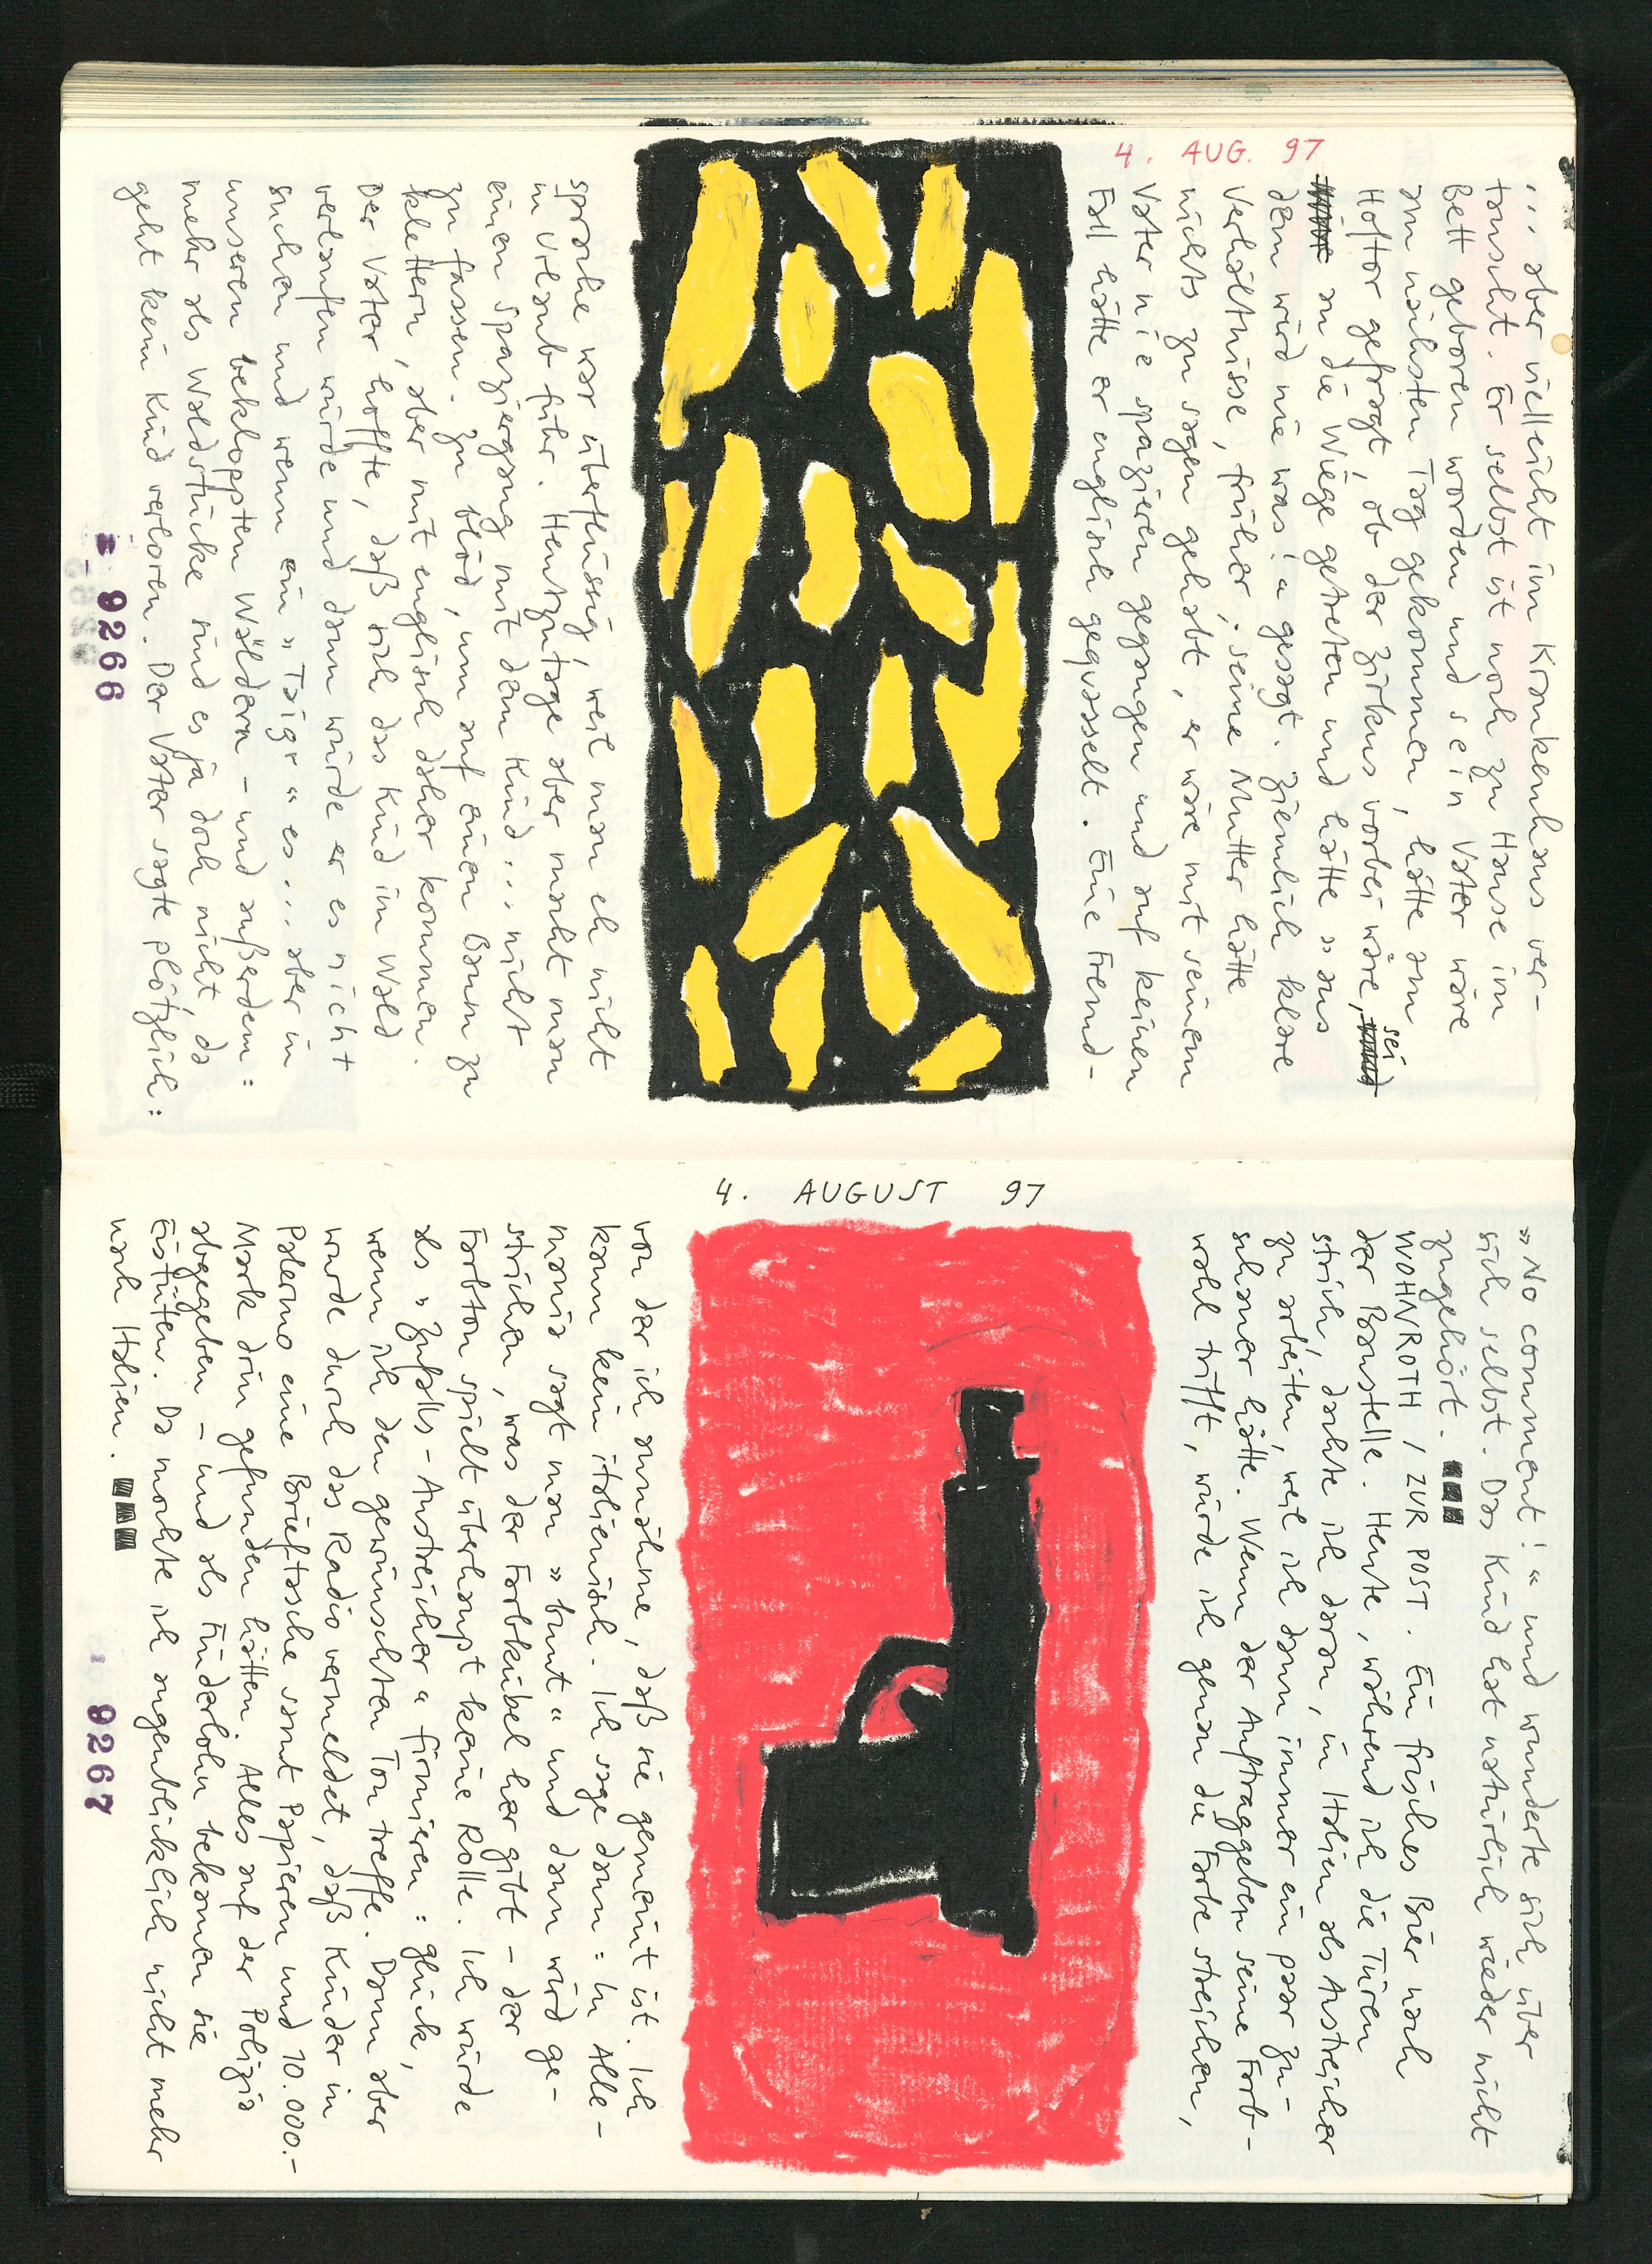 4. AUG. 97
... aber vielleicht im Krankenhaus ver-
tauscht. Er selbst ist noch zu Hause im
Bett geboren worden und sein Vater wäre
am nächsten Tag gekommen, hätte am
Hoftor gefragt, ob der Zirkus vorbei wäre,
sei
an die Wiege getreten und hätte »aus
dem wird nie was!« gesagt. Ziemlich klare
Verhältnisse, früher; seine Mutter hätte
nichts zu sagen gehabt, er wäre mit seinem
Vater nie spazieren gegangen und auf keinen
Fall hätte er englisch gequasselt. Eine Fremd-
sprache war überflüssig, weil man eh nicht
in Urlaub fuhr. Heutzutage aber macht man
einen Spaziergang mit dem Kind... nicht
zu fassen. Zu blöd, um auf einen Baum zu
klettern, aber mit englisch daher kommen.
Der Vater hoffte, daß sich das Kind im Wald
verlaufen würde und dann würde er es nicht
suchen und wenn ein »Taigr« es... aber in
unseren bekloppten Wäldern - und außerdem:
mehr als Waldstücke sind es ja doch nicht, da
geht kein Kind verloren. Der Vater sagte plötzlich:
9266
4. AUGUST 97
»No comment!« und wunderte sich über
sich selbst. Das Kind hat natürlich wieder nicht
zugehört.
WOHNROTH / ZUR POST. Ein frisches Bier nach
der Baustelle. Heute, während ich die Türen
strich, dachte ich daran, in Italien als Anstreicher
zu arbeiten, weil ich dann immer ein paar Zu-
schauer hätte. Wenn der Auftraggeber seine Farb-
wahl trifft, würde ich genau die Farbe streichen,
von der ich annähme, daß sie gemeint ist. Ich
kann kein italienisch. Ich sage dann: In Alle-
mania sagt man »bunt« und dann wird ge-
strichen, was der Farbkübel her gibt - der
Farbton spielt überhaupt keine Rolle. Ich würde
als »Zufalls-Anstreicher« firmieren: Glück,
wenn ich den gewünschten Ton treffe. Dann aber
wurde durch das Radio vermeldet, daß Kinder in
Palermo eine Brieftasche samt Papieren und 10.000.-
Mark drin gefunden hätten. Alles auf der Polizia
abgegeben - und als Finderlohn bekamen sie
Eistüten. Da mochte ich augenblicklich nicht mehr
nach Italien.
9267